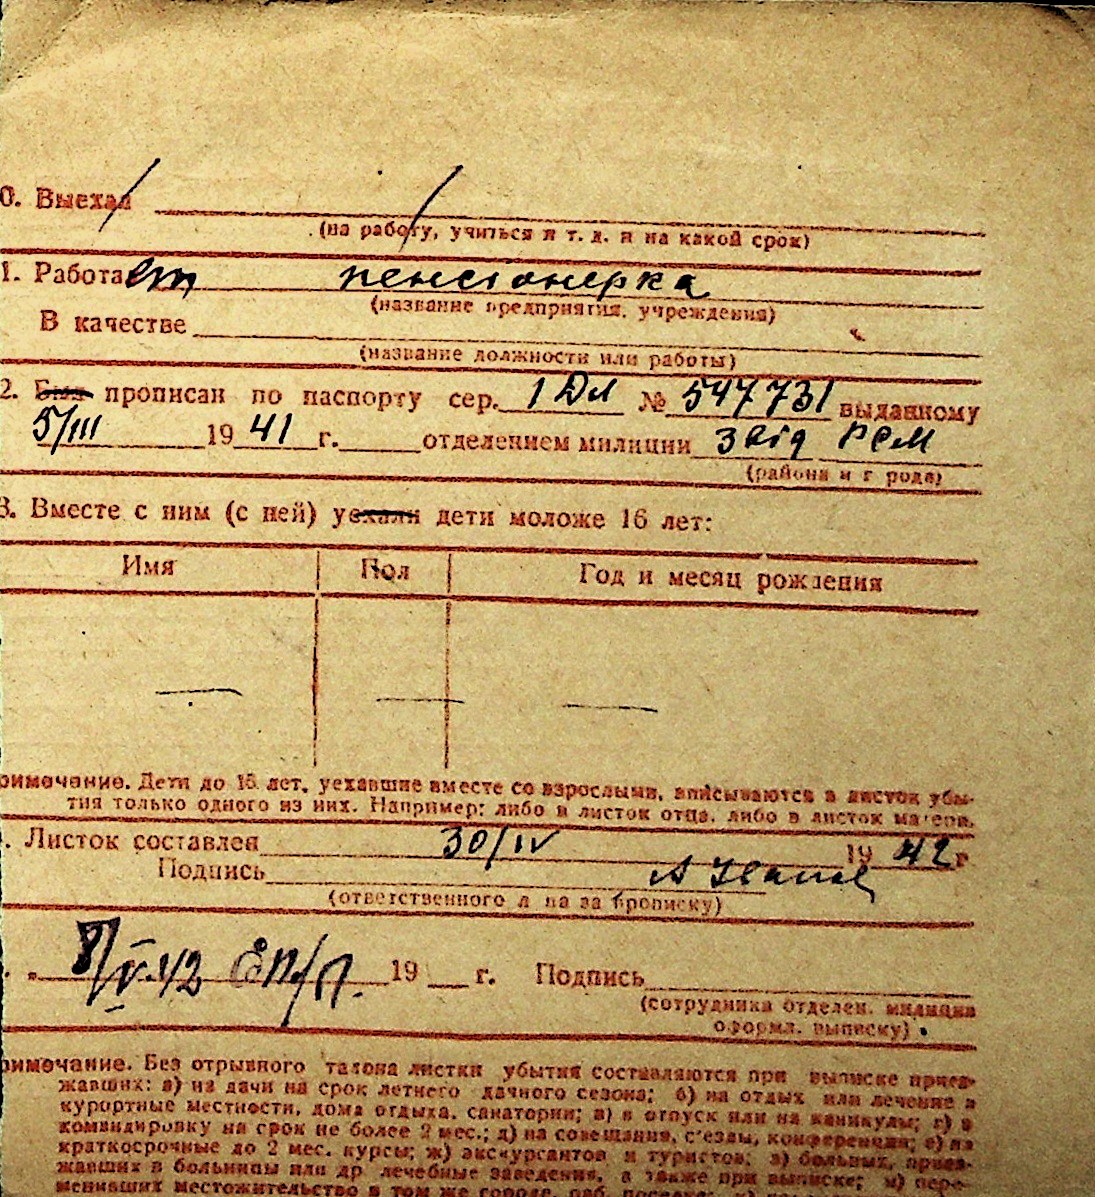 0. Выехал
(на работу, учиться и т. д. и на какой срок)
1. Работает пенсионерка
(название предприятия, учреждения)
В качестве
(название должности или работы)
2. Был прописан по паспорту сер. 1 Дл № 547731 выданному
5/III 1941 г. отделением милиции РКМ
(района и города)
3. Вместе с ним (с ней) уехали дети моложе 16 лет:
Имя Пол Год и месяц рождения
— — —
римечание. Дети до 16 лет, уехавшие вместе со взрослыми, вписываются в листок убы-
тия только одного из них. Например: либо в листок отца, либо в листок матери.
. Листок составлен 30/IV 1942 г
Подпись
(ответственного л ца за прописку)
. „ 8/V.42 19 г. Подпись
(сотрудника отделен. милиции
оформл. выписку)
римечание. Без отрывного талона листки убытия составляются при выписке приез-
жавших: а) на дачи на срок летнего дачного сезона; б) на отдых или лечение в
курортные местности, дома отдыха, санатории; в) в отпуск или на каникулы; г) в
командировку на срок не более 2 мес.; д) на совещания, с'езды, конференции; е) на
краткосрочные до 2 мес. курсы; ж) экскурсантов и туристов; з) больных, приез-
жавших в больницы или др лечебные заведения, а также при выписке; и) пере-
менивших местожительство в том же городе, раб. поселке;